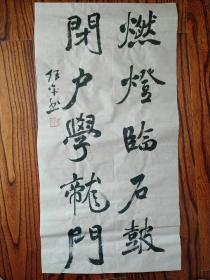 燃燈臨石鼓
閉户學龍門